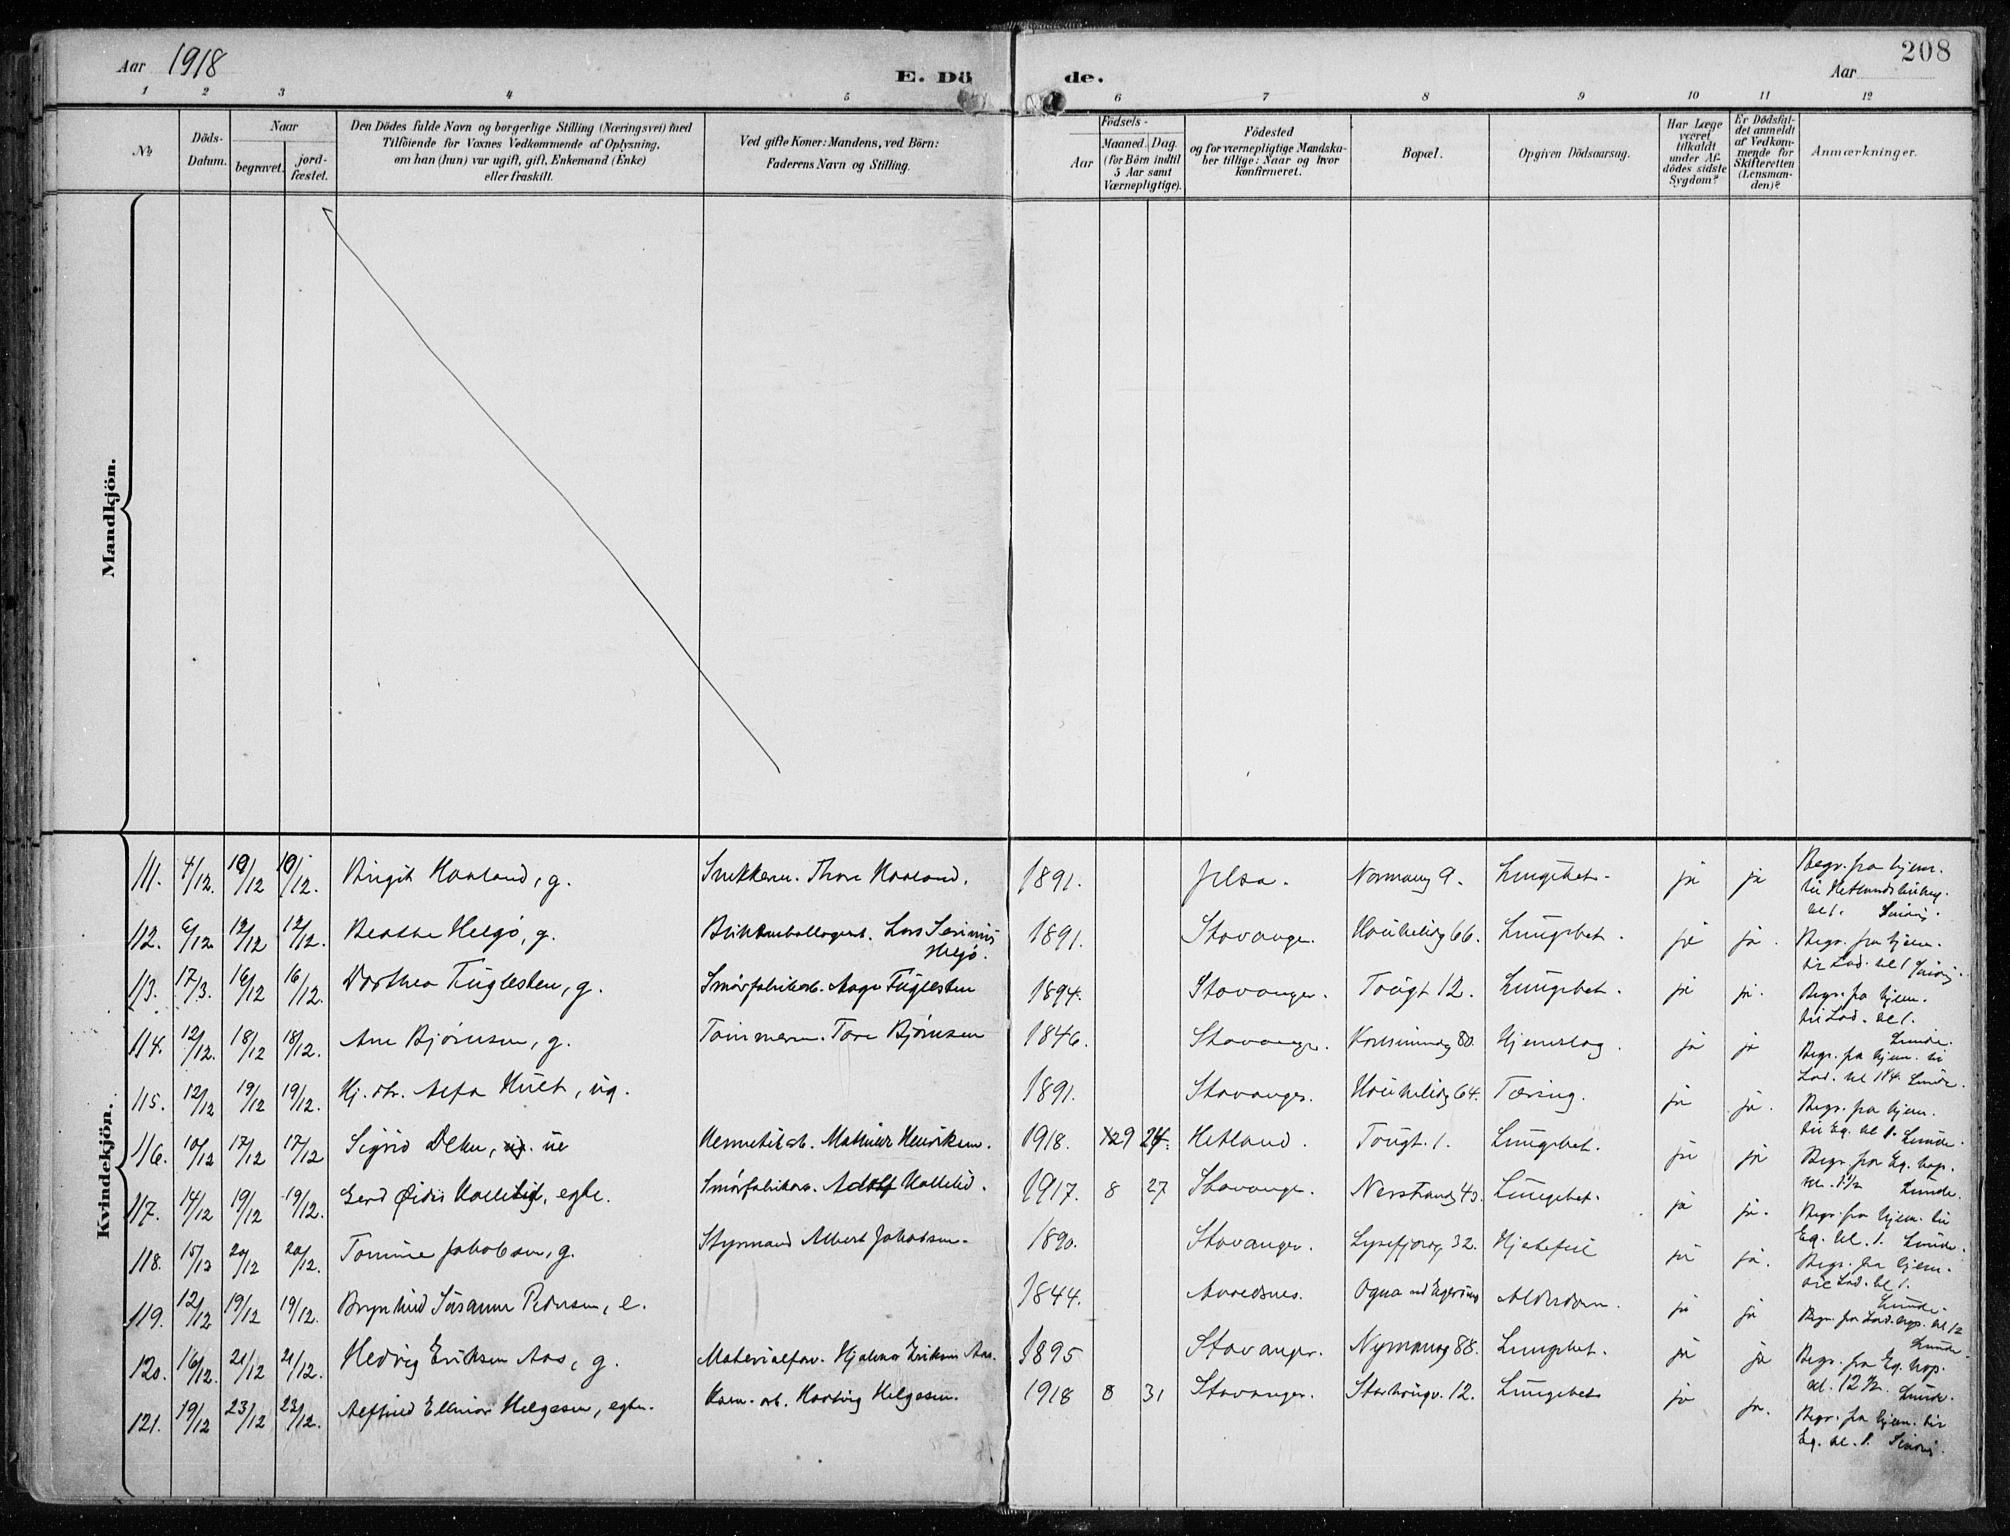 Aar 1918
E. Dö de.
208
Aar
1 2 3 4 5 6 7 8 9 10 11 12
№
Döds-Datum.
Naar
begravet.
jord-fæstet.
Den Dödes fulde Navn og borgerlige Stilling (Næringsvei) med
Tilföiende for Voxnes Vedkommende af Oplysning,
om han (hun) var ugift, gift, Enkemand (Enke)
eller fraskilt.
Ved gifte Koner: Mandens, ved Börn:
Faderens Navn og Stilling.
Födsels-
Aar
Maaned. Dag.
(for Börn indtil
5 Aar samt
Værnepligtige).
Födested
og for værnepligtige Mandska-
ber tillige: Naar og hvor
konfirmeret.
Bopæl.
Opgiven Dödsaarsag.
Har Læge
været
tilkaldt
under Af-
dödes sidste
Sygdom?
Er Dödsfal-
det anmeldt
af Vedkom-
mende for
Skifteretten
(Lensman-
den)?
Anmærkninger.
Mandkjön.
Kvindekjön.
111. 4/12. 10/12 10/12. Birgit Haaland, g. Snekkerm. Thore Haaland. 1891. Jelsa. Normanng 9. Lungebet. ja ja Begr. fra hjem.
112. 6/12 12/12 12/12. Beathe Helgø, g. Lars Serinius
Helgø. 1891. Stavanger. Haukeligt 66. Lungebet. ja ja. Begr. fra hjem.
113. 17/3. 16/12 16/12. Dorthea Fuglesten, g. Smørfabrikarb. Aage Fuglesten 1894. Stavanger. Taugt 12. Lungebet. ja ja. Begr. fra hjem.
til Lad. kl 1. Lunde.
114. 12/12. 18/12 18/12. Ane Bjørnsen, g. Tømmerm. Tore Bjørnsen 1846. Stavanger. 80. Hjerneslag. ja ja Begr. fra hjem. til
Lad. kl 1 1/4. Lunde.
115. 12/12 19/12 19/12. Hj. dtr. Alfa Hult, ug. 1891. Stavanger. Haukeligt 64. Tæring. ja ja. Begr. fra hjem.
til Eg. kl 1. Lunde.
116. 10/12 17/12 17/12 Sigrid Olsen, ue Hermetikarb. Mathias Henriksen. 1918. 9 24. Hetland. Taugt. 1. Lungebet. ja ja Begr. fra Eg. kap.
kl. 1 1/2 Lunde.
117. 14/12 19/12 19/12. Gerd Øidis Hallelid, egte. Smørfabrikarb. Adolf Hallelid. 1917. 8 27 Stavanger. Lungebet. ja ja. Begr. fra hjem. til
Eg. kl. 1. Lunde.
118. 15/12 20/12 20/12. Tomine Jakobsen, g. Styrmand Albert Jakobsen. 1890. Stavanger. Lysefjordg 32. Hjertefeil ja ja. Begr. fra hjem.
til Lad. kl 1. Lunde.
119. 12/12 19/12 19/12. Brynhild Susanne Pedersen, e. 1844. Avaldsnes. Ogna ved Egersund Alderdom. ja ja Begr. fra Lad. kap. kl 12
Lunde.
120. 16/12. 21/12 21/12. Hedvig Eriksen Aas, g. Materialforv. Hjalmar Eriksen Aas. 1895 Stavanger. Nymansg 88. Lungebet. ja ja Begr. fra Eg. kap.
kl. 12 1/2. Lunde.
121. 19/12 23/12 23/12. Alfhild Ellinor Helgesen, egte. arb. Hartvig Helgesen. 1918 8 31 Stavanger. Storhaugv. 12. Lungebet. ja ja. Begr. fra hjem. til
Eg. kl. 1.